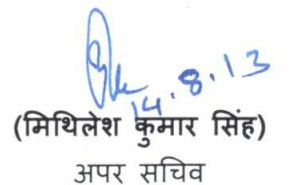 14.8.13
(मिथिलेश कुमार सिंह)
अपर सचिव